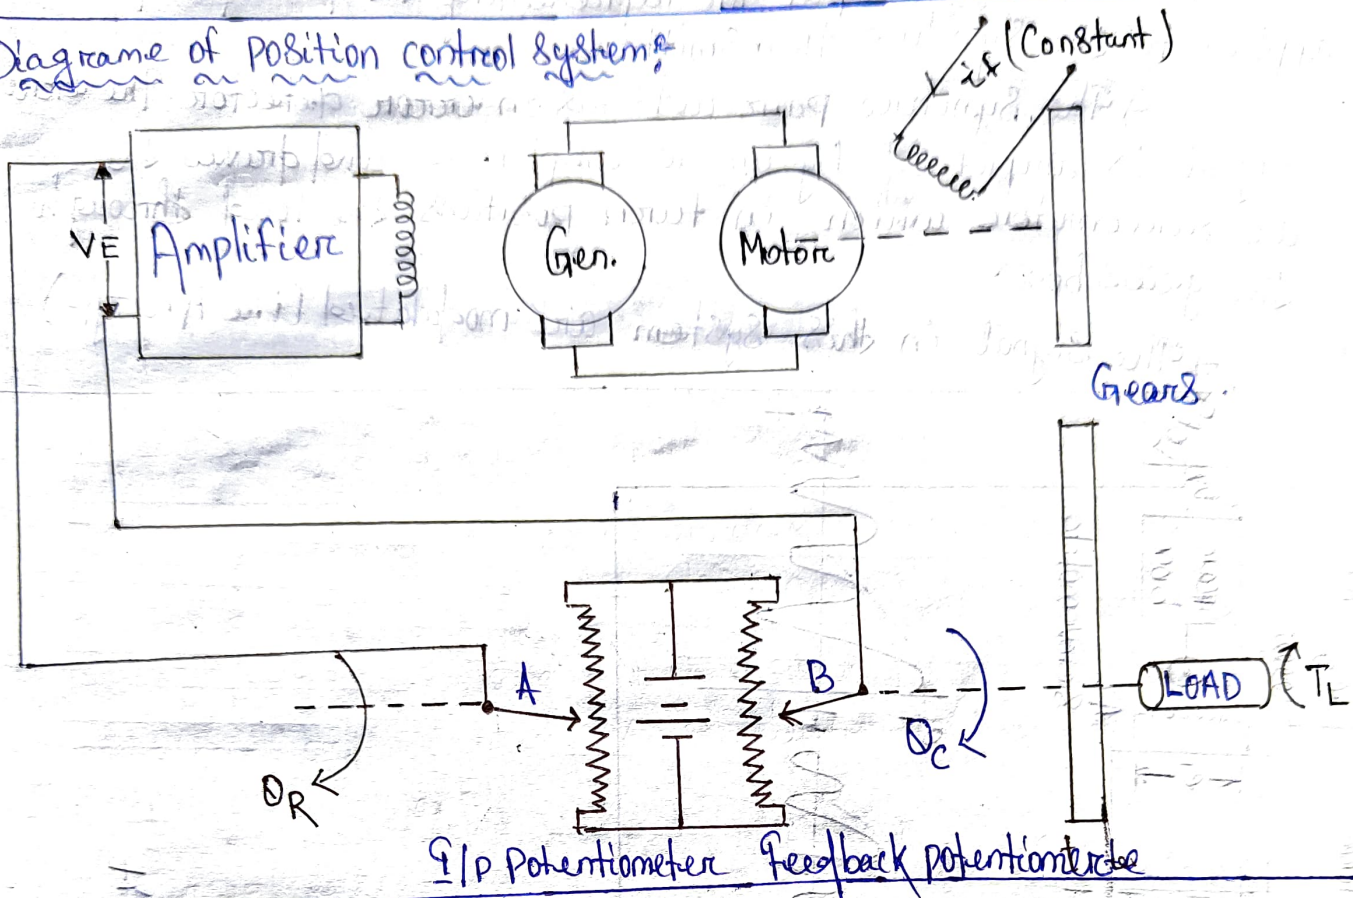 Diagrame of position control system:
if (Constant)
VE
Amplifier
Gen.
Motor
Gears.
A
B
θR
θC
LOAD
TL
I/p potentiometer feedback potentiometer